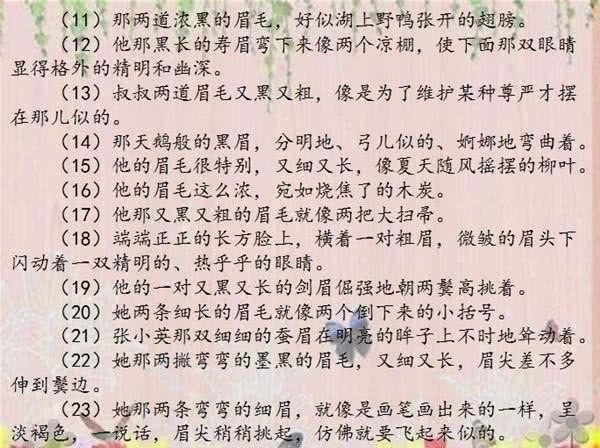 (11)那两道浓黑的眉毛，好似湖上野鸭张开的翅膀。
(12)他那黑长的寿眉弯下来像两个凉棚，使下面那双眼睛
显得格外的精明和幽深。
(13)叔叔两道眉毛又黑又粗，像是为了维护某种尊严才摆
在那儿似的。
(14)那天鹅般的黑眉，分明地、弓儿似的、婀娜地弯曲着。
(15)他的眉毛很特别，又细又长，像夏天随风摇摆的柳叶。
(16)他的眉毛这么浓，宛如烧焦了的木炭。
(17)他那又黑又粗的眉毛就像两把大扫帚。
(18)端端正正的长方脸上，横着一对粗眉，微皱的眉头下
闪动着一双精明的、热乎乎的眼睛。
(19)他的一对又黑又长的剑眉倔强地朝两鬓高挑着。
(20)她两条细长的眉毛就像两个倒下来的小括号。
(21)张小英那双细细的蚕眉在明亮的眸子上不时地耸动着。
(22)她那两撇弯弯的墨黑的眉毛，又细又长，眉尖差不多
伸到鬓边。
(23)她那两条弯弯的细眉，就像是画笔画出来的一样，呈
淡褐色，一说话，眉尖稍稍挑起，仿佛就要飞起来似的。